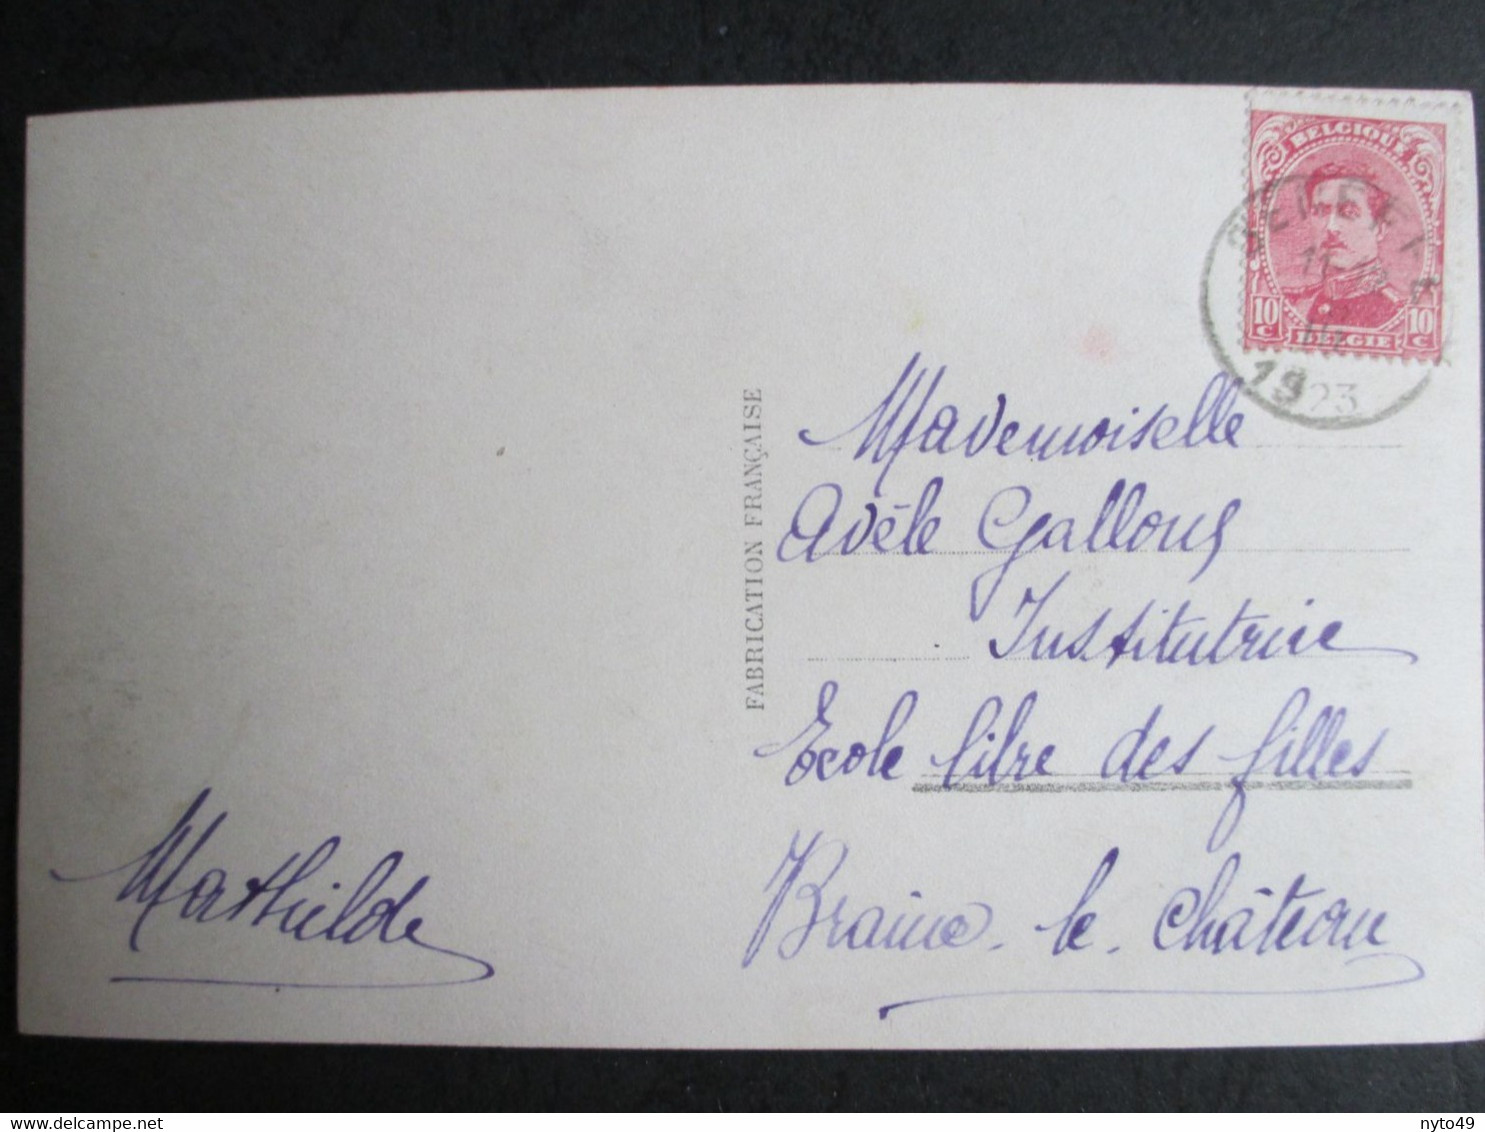 BELGIQUE
10 c 10 c
BELGIE
SENEFFE
11-12
1923
FABRICATION FRANÇAISE
Mademoiselle
Adèle Gallous
Institutrice
Ecole libre des filles
Braine-le-Château
Mathilde
delcampe.net
nyto49